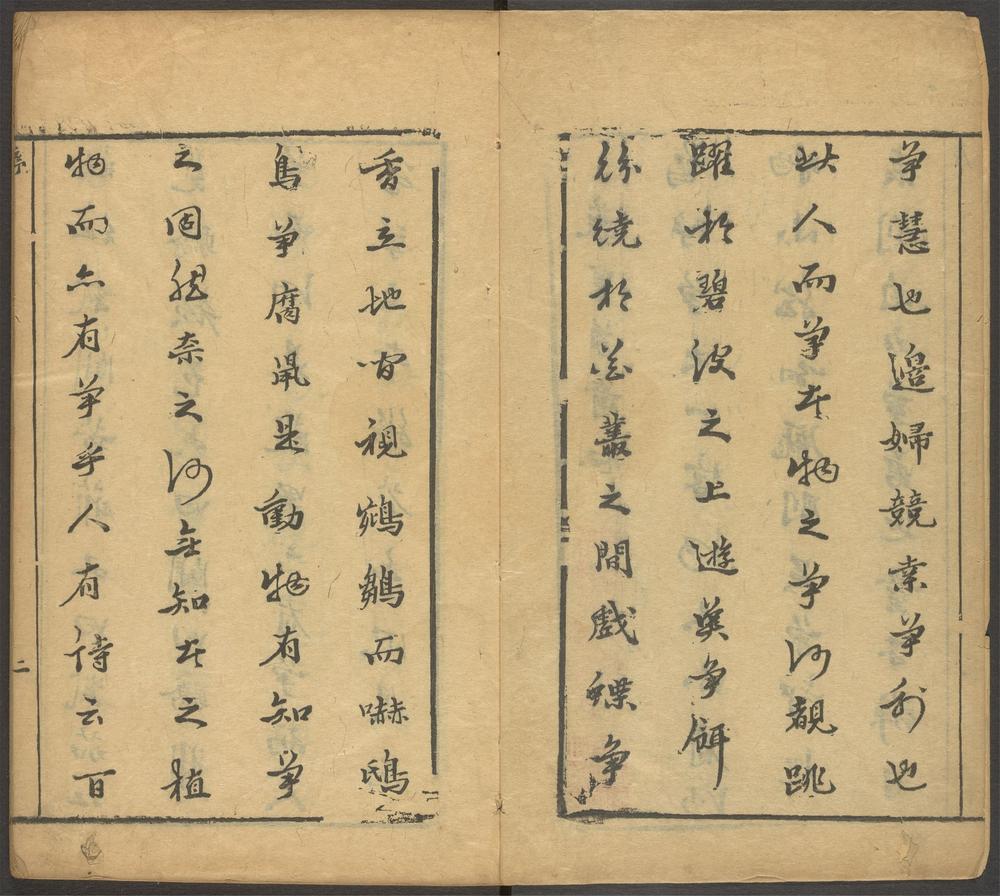 爭慧也邊婦競桑爭利也
此人而爭者物之爭何覩跳
躍於碧波之上遊魚爭餌
紛繞於花叢之間戲蝶爭
香立地視鵷鶵而嚇鴟
鳥爭腐鼠是動物有知爭
之固然奈之何無知者之植
物而亦有爭乎人有詩云百
序 二